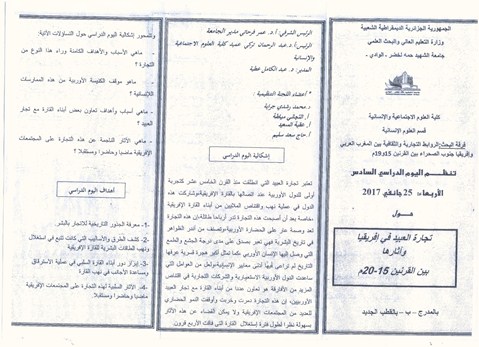 الجمهورية الجزائرية الديمقراطية الشعبية
وزارة التعليم العالي والبحث العلمي
جامعة الشهيد حمه لخضر - الوادي -
كلية العلوم الاجتماعية والإنسانية
قسم العلوم الإنسانية
فرقة البحث: الروابط التجارية والثقافية بين المغرب العربي
وإفريقيا جنوب الصحراء بين القرنين 15و19م
تنظم اليوم الدراسي السادس
الأربعاء 25 جانفي 2017
حول
تجارة العبيد في إفريقيا
وآثارها
بين القرنين 15-20م
بالمدرج - ب - بالقطب الجديد
الرئيس الشرفي: أ.د. عمر فرحاتي مدير الجامعة
الرئيس: أ.د. عبد الرحمان تركي عميد كلية العلوم الاجتماعية
والإنسانية
المدير: د. عبد الكامل عطية
* أعضاء اللجنة التنظيمية:
د. محمد رشدي جراية
أ. التجاني مياطة
أ. عقبة السعيد
أ. حاج سعد سليم
إشكالية اليوم الدراسي
تعتبر تجارة العبيد التي انطلقت منذ القرن الخامس عشر كتجربة
أولى للدول الأوربية عند اتصالها بالقارة الإفريقية
الدول في عملية نهب واقتناص الملايين من أبناء القارة الإفريقية
خاصة بعد أن أصبحت هذه التجارة تدر أرباحا طائلة
تعد وصمة عار على الحضارة الأوربية
في تاريخ البشرية فهي تعبر بصدق على مدى درجة الجشع والطمع
التي وصل إليها الإنسان الأوربي كما تمثل أكبر هجرة قسرية عرفها
التاريخ لم تراعى فيها أدنى معايير الإنسانية ولعل من العوامل التي
ساعدت الدول الأوربية الاستعمارية والشركات التجارية في اقتناص
المزيد من الأفارقة هو تعاون عددا من أبناء القارة مع تجار العبيد
الأوربيين، إن هذه التجارة دمرت وخربت وأوقفت النمو الحضاري
للعديد من المجتمعات الإفريقية ولا يمكن القضاء عن هذه الآثار
بسهولة نظرا لطول فترة إستغلال القارة التي فاقت الأربع قرون.
وتتمحور إشكالية اليوم الدراسي حول التساؤلات الآتية:
- ماهي الأسباب والأهداف الكامنة وراء هذا النوع من
التجارة؟
- ماهو موقف الكنيسة الأوربية من هذه الممارسات
الإنسانية؟
- ماهي أسباب وأهداف تعاون بعض أبناء القارة مع تجار
العبيد؟
- ماهي الآثار الناجمة عن هذه التجارة على المجتمعات
الإفريقية ماضيا وحاضرا ومستقبلا؟
أهداف اليوم الدراسي
1- معرفة الجذور التاريخية للاتجار بالبشر.
2- كشف الطرق والأساليب التي كانت تتبع في استغلال
ونهب الطاقات البشرية للقارة الإفريقية
3- إبراز دور أبناء القارة السلبي في عملية الاسترقاق
ومساعدة الأجانب في نهب القارة
4- الآثار السلبية لهذه التجارة على المجتمعات الإفريقية
ماضيا وحاضرا ومستقبلا.